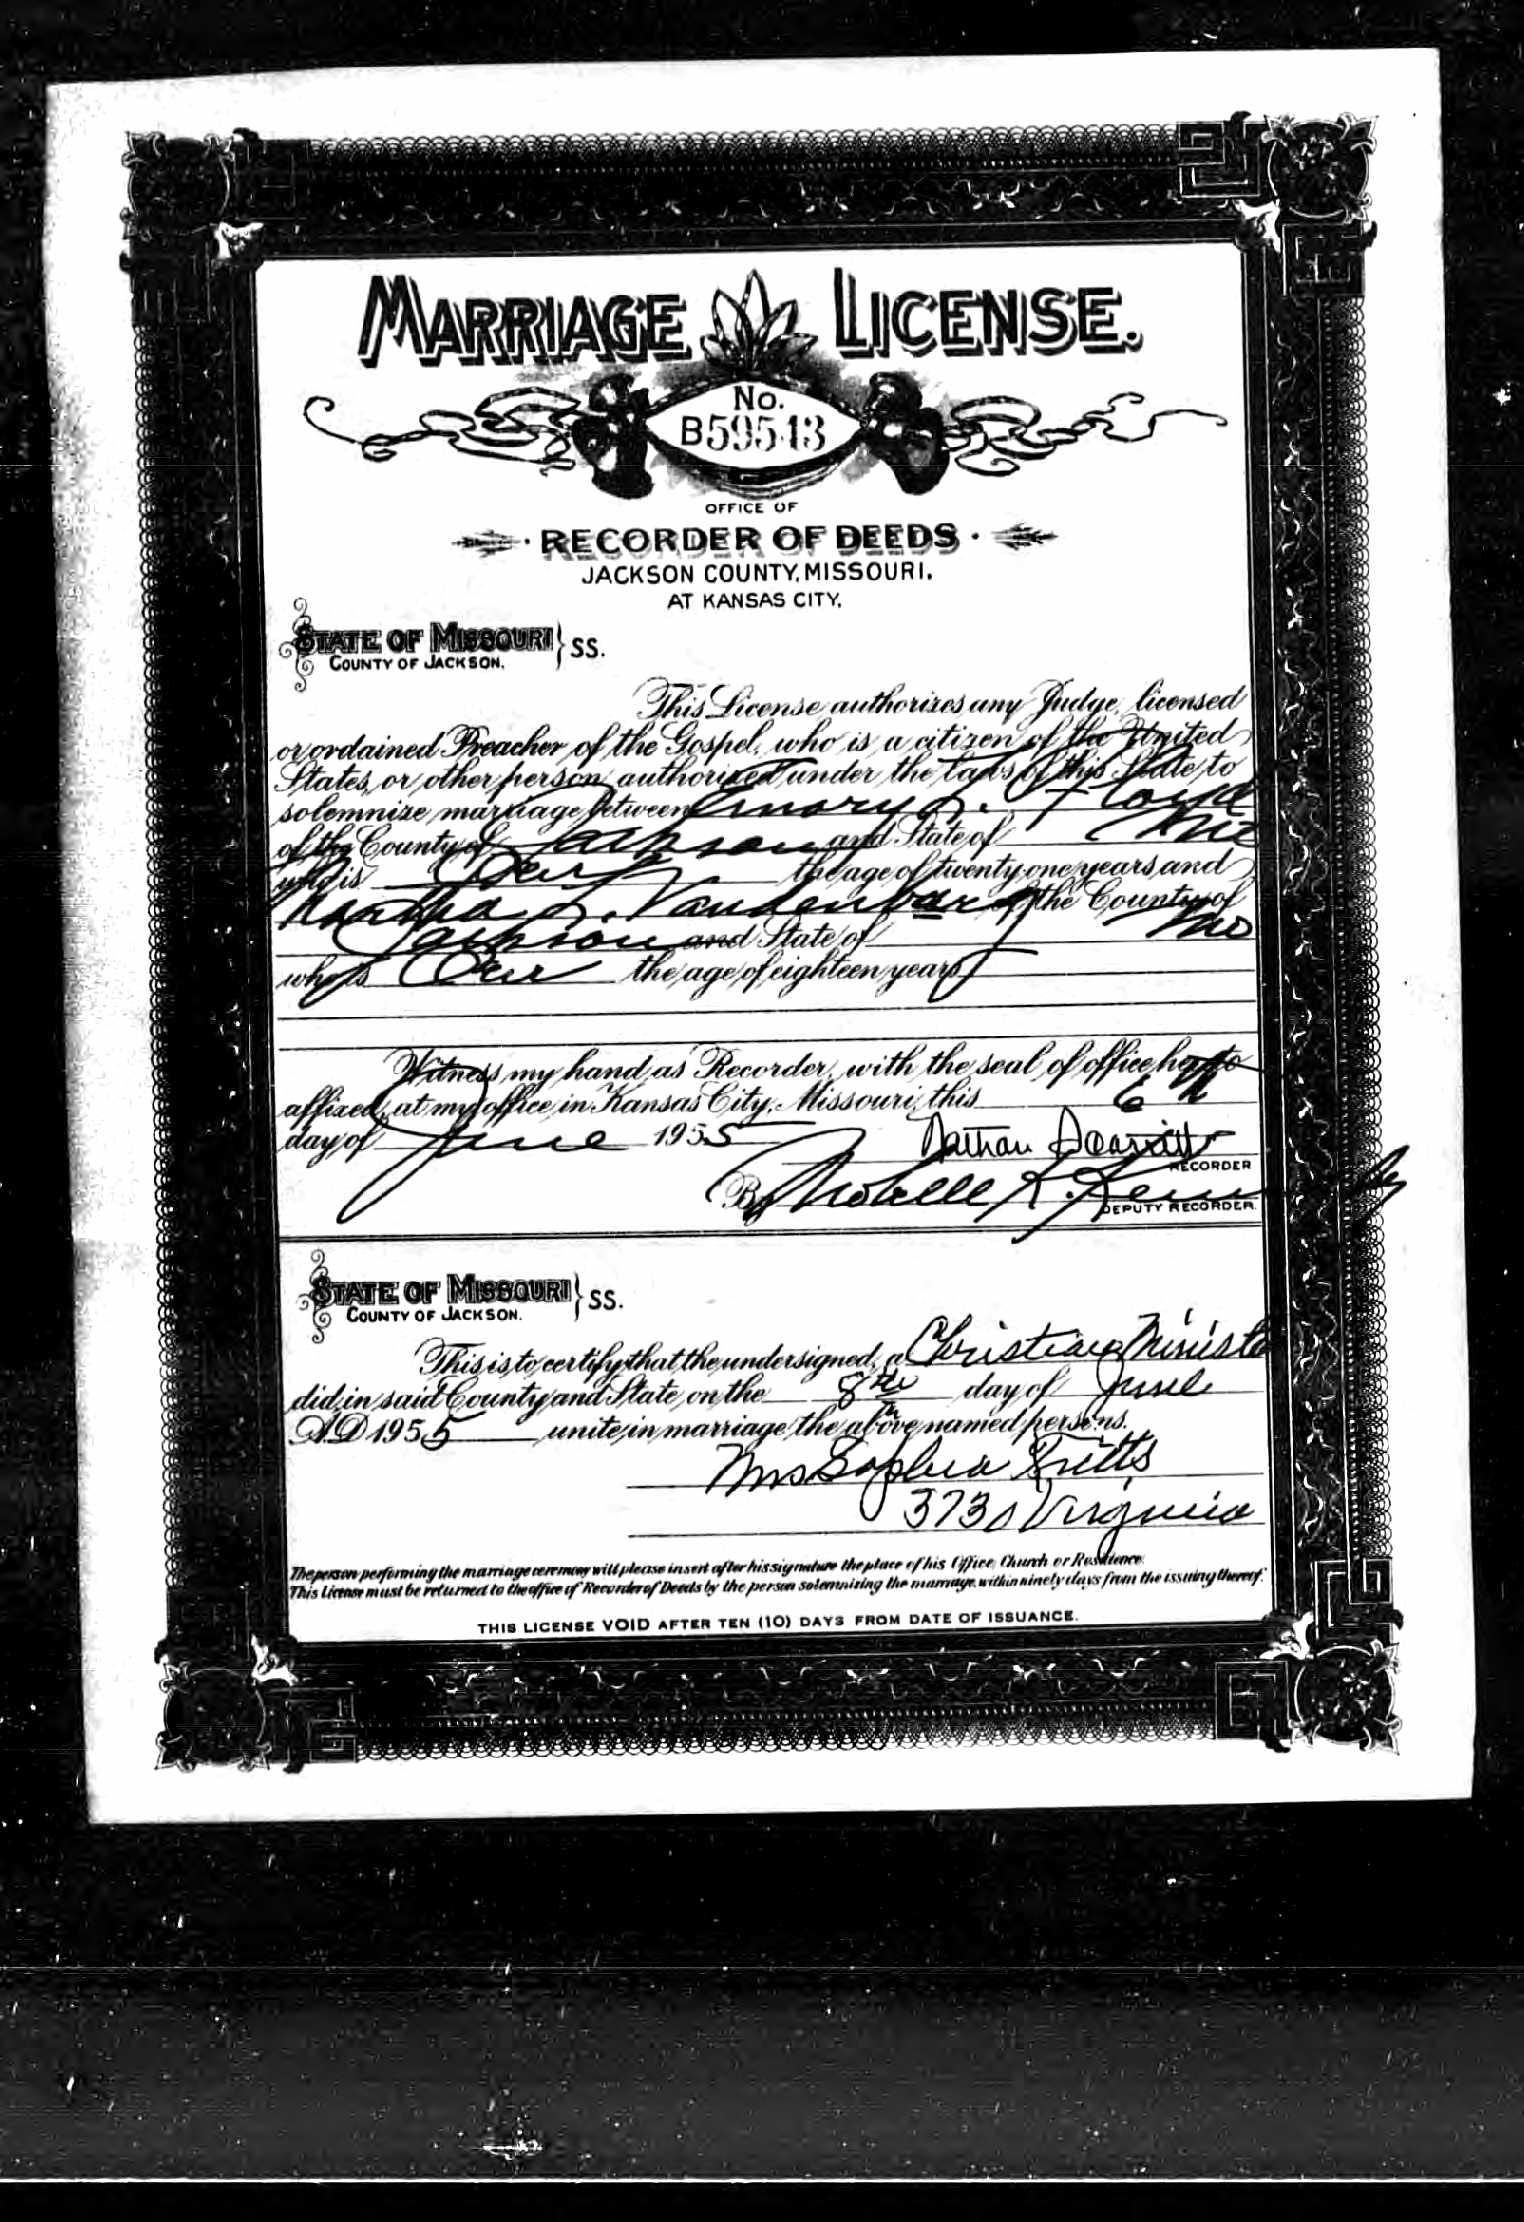 MARRIAGE LICENSE.
No.
B59543
OFFICE OF
RECORDER OF DEEDS
JACKSON COUNTY, MISSOURI.
AT KANSAS CITY.
STATE OF MISSOURI } SS.
COUNTY OF JACKSON.
This License authorizes any Judge, licensed
or ordained Preacher of the Gospel, who is a citizen of the United
States, or other person authorized under the laws of this State, to
solemnize marriage between Emory L. Floyd
of the County of Jackson and State of Mo
who is Over the age of twenty one years and
Martha L. Vandenbark of the County of
Jackson and State of Mo
who is Over the age of eighteen years
Witness my hand as Recorder, with the seal of office hereto
affixed, at my office in Kansas City, Missouri, this 6th
day of June 1955
Nathan Scarritt
RECORDER
By
DEPUTY RECORDER.
STATE OF MISSOURI } SS.
COUNTY OF JACKSON.
This is to certify that the undersigned, a Christian Ministe
did in said County and State, on the 8th day of June
A.D 1955 unite in marriage the above named persons.
Mrs Sophia Fritts
Virginia
The person performing the marriage ceremony will please insert after his signature the place of his Office, Church or Residence.
This License must be returned to the office of Recorder of Deeds by the person solemnizing the marriage, within ninety days from the issuing thereof.
THIS LICENSE VOID AFTER TEN (10) DAYS FROM DATE OF ISSUANCE.